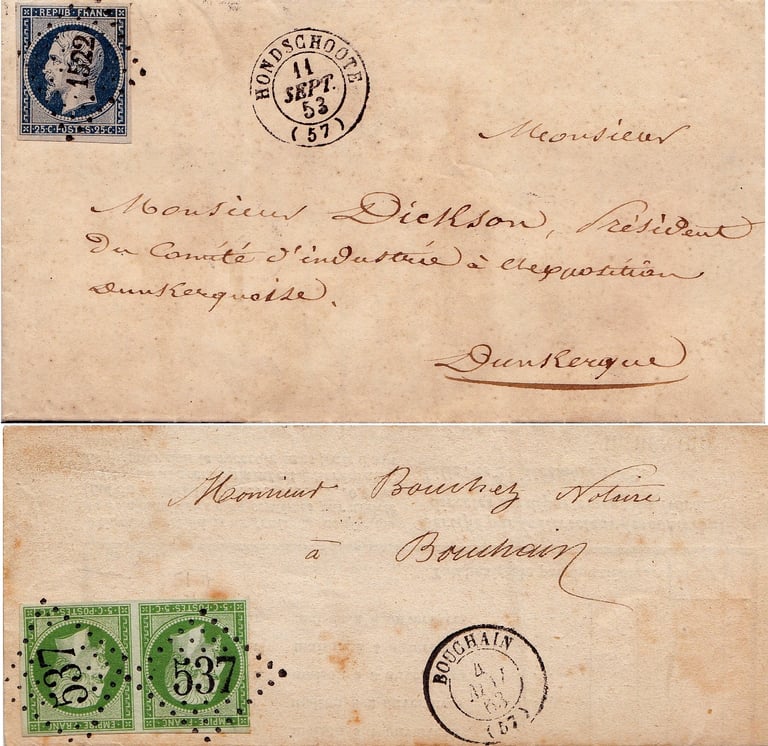 REPUB·FRANC
1522
25·C·POSTES·25·C
HONDSCHOOTE
11
SEPT.
53
(57)
Monsieur
Monsieur Dickson, Président
Du Comité d'industrie à l'exposition
Dunkerquoise.
Dunkerque
Monsieur Bouchez Notaire
à Bouchain
5·C·POSTES·5·C
5·C·POSTES·5·C
537
537
EMPIRE·FRANC
EMPIRE·FRANC
BOUCHAIN
4
63
(57)